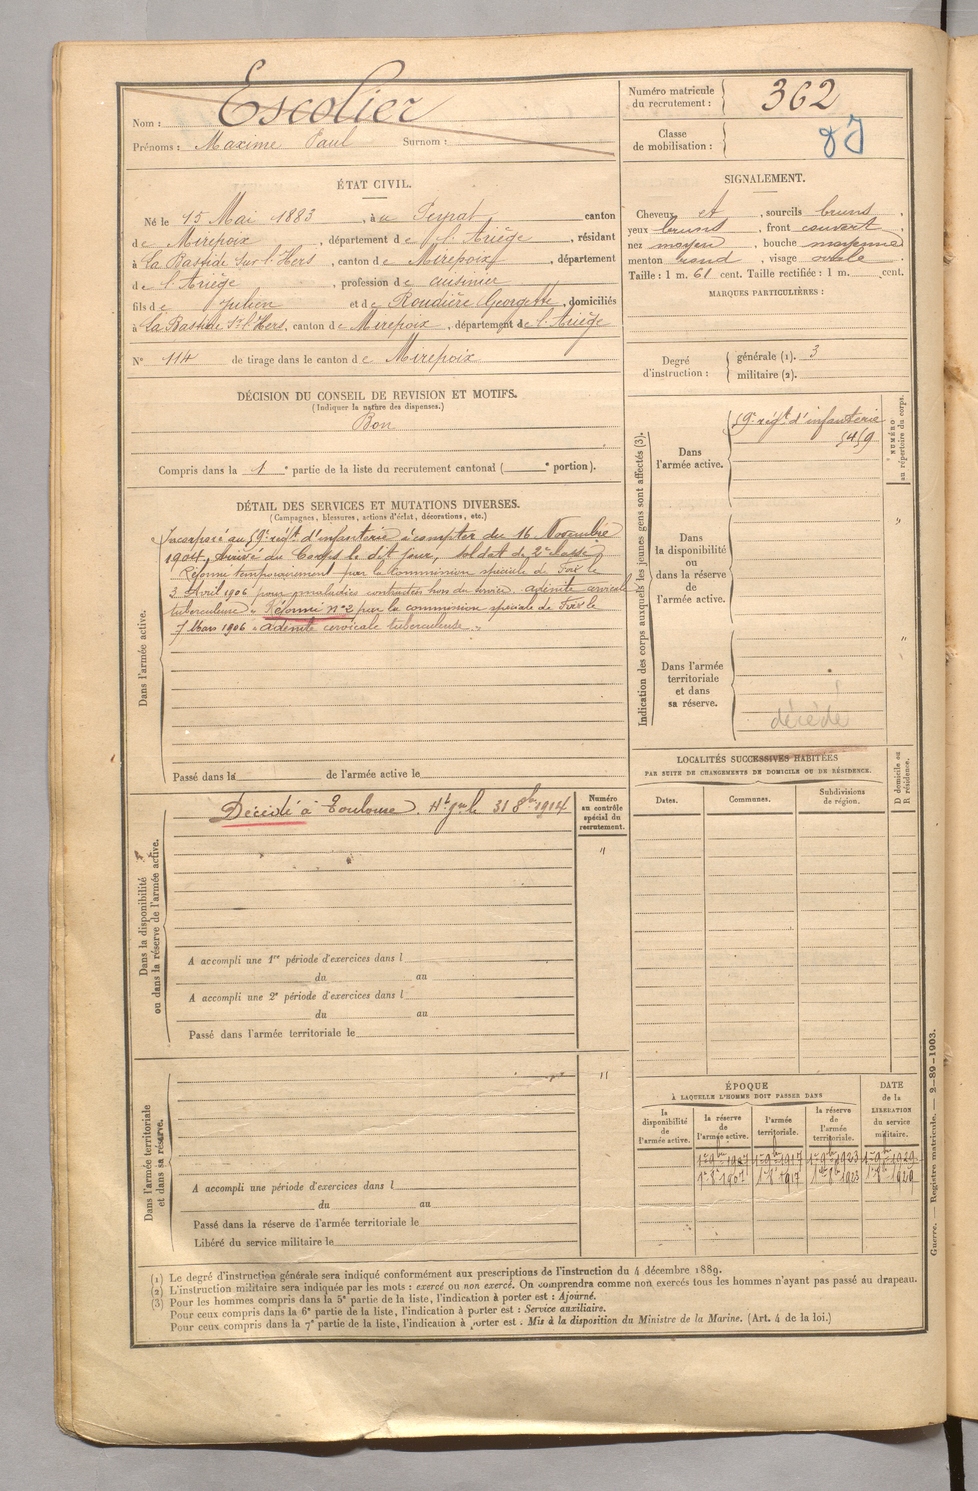 Nom : Escolier
Prénoms : Maxime Paul Surnom :
Numéro matricule du recrutement : 362
Classe de mobilisation :
ÉTAT CIVIL.
Né le 15 Mai 1883, à au Peyrat, canton
de Mirepoix, département de l'Ariège, résidant
à La Bastide Sur l'Hers, canton de Mirepoix, département
de l'Ariège, profession de cuisinier
fils de Julien et de Roudière Georgette, domiciliés
à La Bastide S/ l'Hers, canton de Mirepoix, département de l'Ariège
N° 114 de tirage dans le canton de Mirepoix
SIGNALEMENT.
Cheveux et, sourcils bruns,
yeux bruns, front couvert,
nez moyen, bouche moyenne
menton rond, visage ovale
Taille : 1 m. 61 cent. Taille rectifiée : 1 m. cent.
MARQUES PARTICULIÈRES :
Degré d'instruction : générale (1). 3
militaire (2).
DÉCISION DU CONSEIL DE REVISION ET MOTIFS.
(Indiquer la nature des dispenses.)
Bon
Compris dans la 1e partie de la liste du recrutement cantonal ( e portion).
DÉTAIL DES SERVICES ET MUTATIONS DIVERSES.
(Campagnes, blessures, actions d'éclat, décorations, etc.)
Dans l'armée active.
Incorporé au 59e régt d'infanterie à compter du 16 Novembre
1904. Arrivé au Corps le dit jour, soldat de 2e classe
Réformé temporairement par la Commission spéciale de Foix le
3 Avril 1906 pour maladies contractées hors du service. adénite cervicale
tuberculeuse. Réformé n°2 par la commission spéciale de Foix le
7 Mars 1906 adénite cervicale tuberculeuse.
Passé dans la de l'armée active le
Indication des corps auxquels les jeunes gens sont affectés (3).
NUMÉRO au répertoire du corps.
Dans l'armée active.
59e régt d'infanterie
5459
Dans la disponibilité ou dans la réserve de l'armée active.
"
Dans l'armée territoriale et dans sa réserve.
"
décédé
Dans la disponibilité ou dans la réserve de l'armée active.
Décédé à Toulouse. Hte Gne le 31 8bre 1914
Numéro au contrôle spécial du recrutement.
"
A accompli une 1re période d'exercices dans l
du au
A accompli une 2e période d'exercices dans l
du au
Passé dans l'armée territoriale le
LOCALITÉS SUCCESSIVES HABITÉES
PAR SUITE DE CHANGEMENTS DE DOMICILE OU DE RÉSIDENCE.
Dates. Communes. Subdivisions de région. D domicile ou R résidence.
Dans l'armée territoriale et dans sa réserve.
"
A accompli une période d'exercices dans l
du au
Passé dans la réserve de l'armée territoriale le
Libéré du service militaire le
ÉPOQUE
À LAQUELLE L'HOMME DOIT PASSER DANS
la disponibilité de l'armée active. la réserve de l'armée active. l'armée territoriale. la réserve de l'armée territoriale.
DATE de la LIBÉRATION du service militaire.
(1) Le degré d'instruction générale sera indiqué conformément aux prescriptions de l'instruction du 4 décembre 1889.
(2) L'instruction militaire sera indiquée par les mots : exercé ou non exercé. On comprendra comme non exercés tous les hommes n'ayant pas passé au drapeau.
(3) Pour les hommes compris dans la 5e partie de la liste, l'indication à porter est : Ajourné.
Pour ceux compris dans la 6e partie de la liste, l'indication à porter est : Service auxiliaire.
Pour ceux compris dans la 7e partie de la liste, l'indication à porter est : Mis à la disposition du Ministre de la Marine. (Art. 4 de la loi.)
Guerre. — Registre matricule. — 2-89-1903.